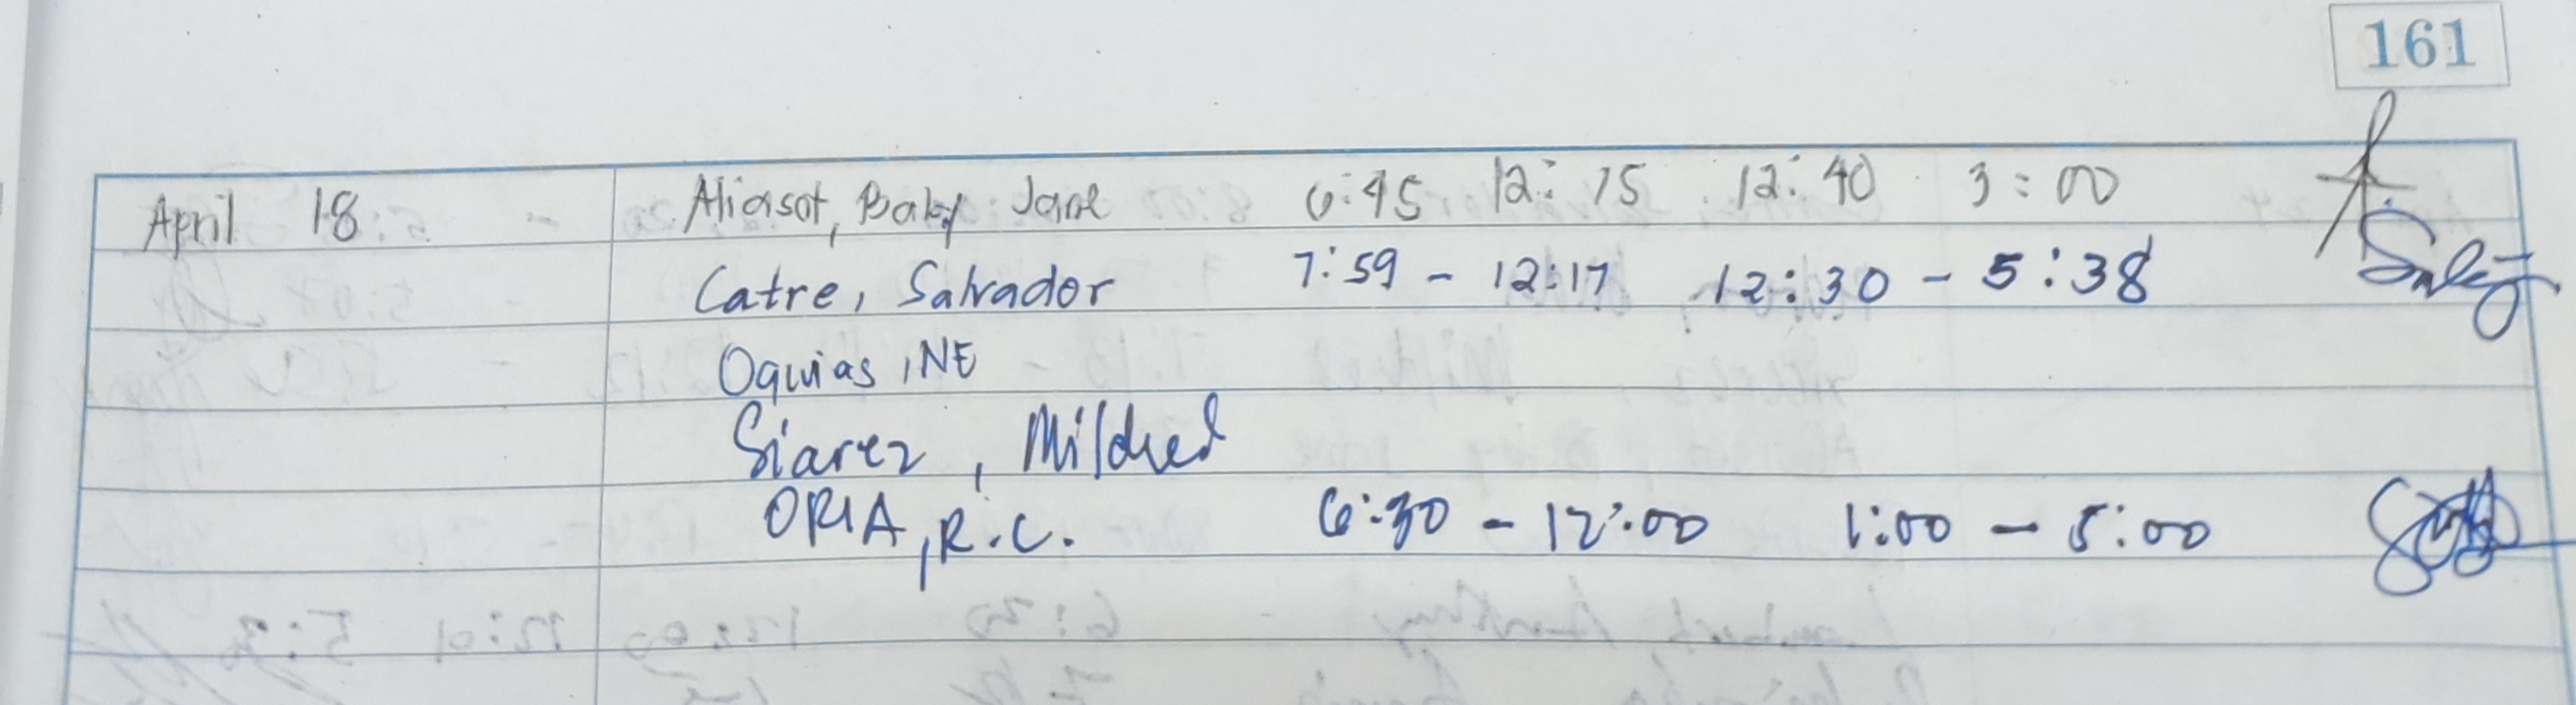 161
April 18 Aliasot, Baby Jane 6:45 12:15 12:40 3:00
Catre, Salvador 7:59 - 12:17 12:30 - 5:38
Oquias, NE
Siarez, Mildred
ORIA, R.C. 6:30 - 12:00 1:00 - 5:00